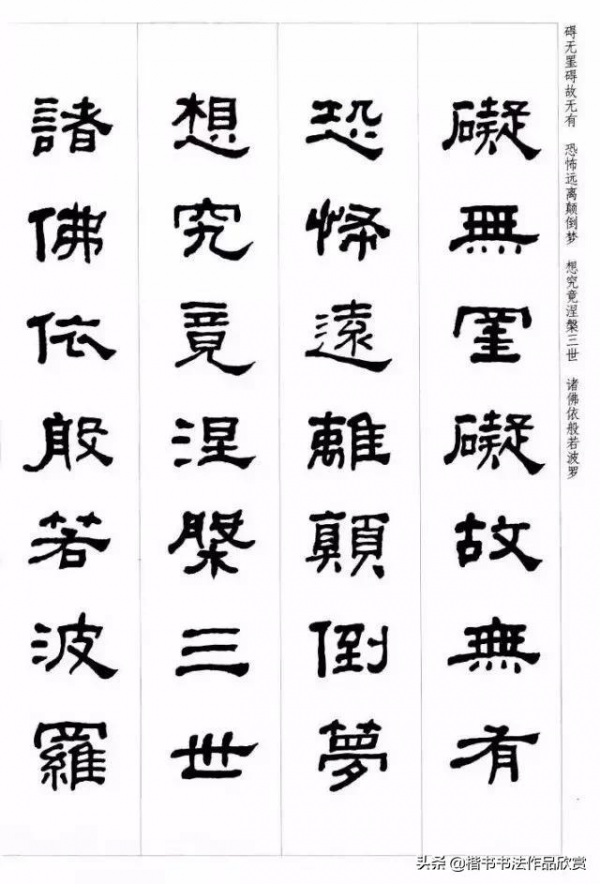 礙無罣礙故無有
恐怖遠離顛倒夢
想究竟涅槃三世
諸佛依般若波羅
碍无罣碍故无有　恐怖远离颠倒梦　想究竟涅槃三世　诸佛依般若波罗
头条 @楷书书法作品欣赏